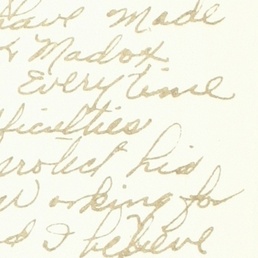 have made
& Madox
Every time
ficulties
protect his
working for
d I believe